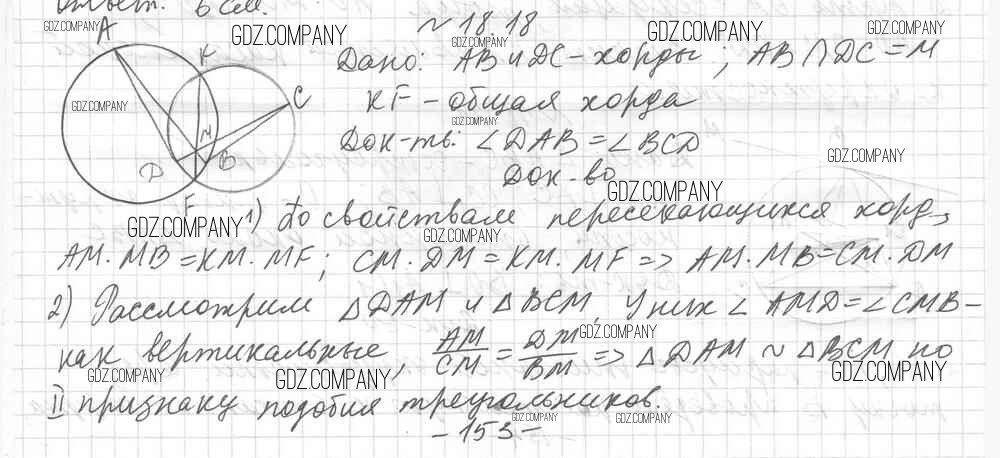 Ответ. 6 см.
GDZ.COMPANY
GDZ.COMPANY GDZ.COMPANY GDZ.COMPANY
N 18.18
GDZ.COMPANY
A K C M D B F
GDZ.COMPANY
Дано: AB и DC - хорды; AB ∩ DC = M
KF - общая хорда
GDZ.COMPANY
Док-ть: ∠DAB = ∠BCD
GDZ.COMPANY
Док-во
GDZ.COMPANY
GDZ.COMPANY
1) По свойствам пересекающихся хорд,
GDZ.COMPANY
AM · MB = KM · MF; CM · DM = KM · MF => AM · MB = CM · DM
2) Рассмотрим △DAM и △BCM. У них ∠AMD = ∠CMB -
GDZ.COMPANY
как вертикальные, AM/CM = DM/BM => △DAM ~ △BCM по
GDZ.COMPANY GDZ.COMPANY GDZ.COMPANY
II признаку подобия треугольников.
GDZ.COMPANY GDZ.COMPANY
- 153 -